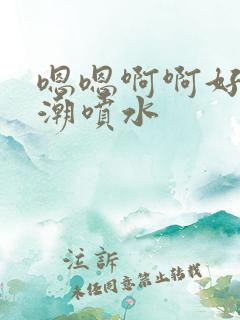 嗯嗯啊啊好
潮噴水
注訴
未经同意禁止转载